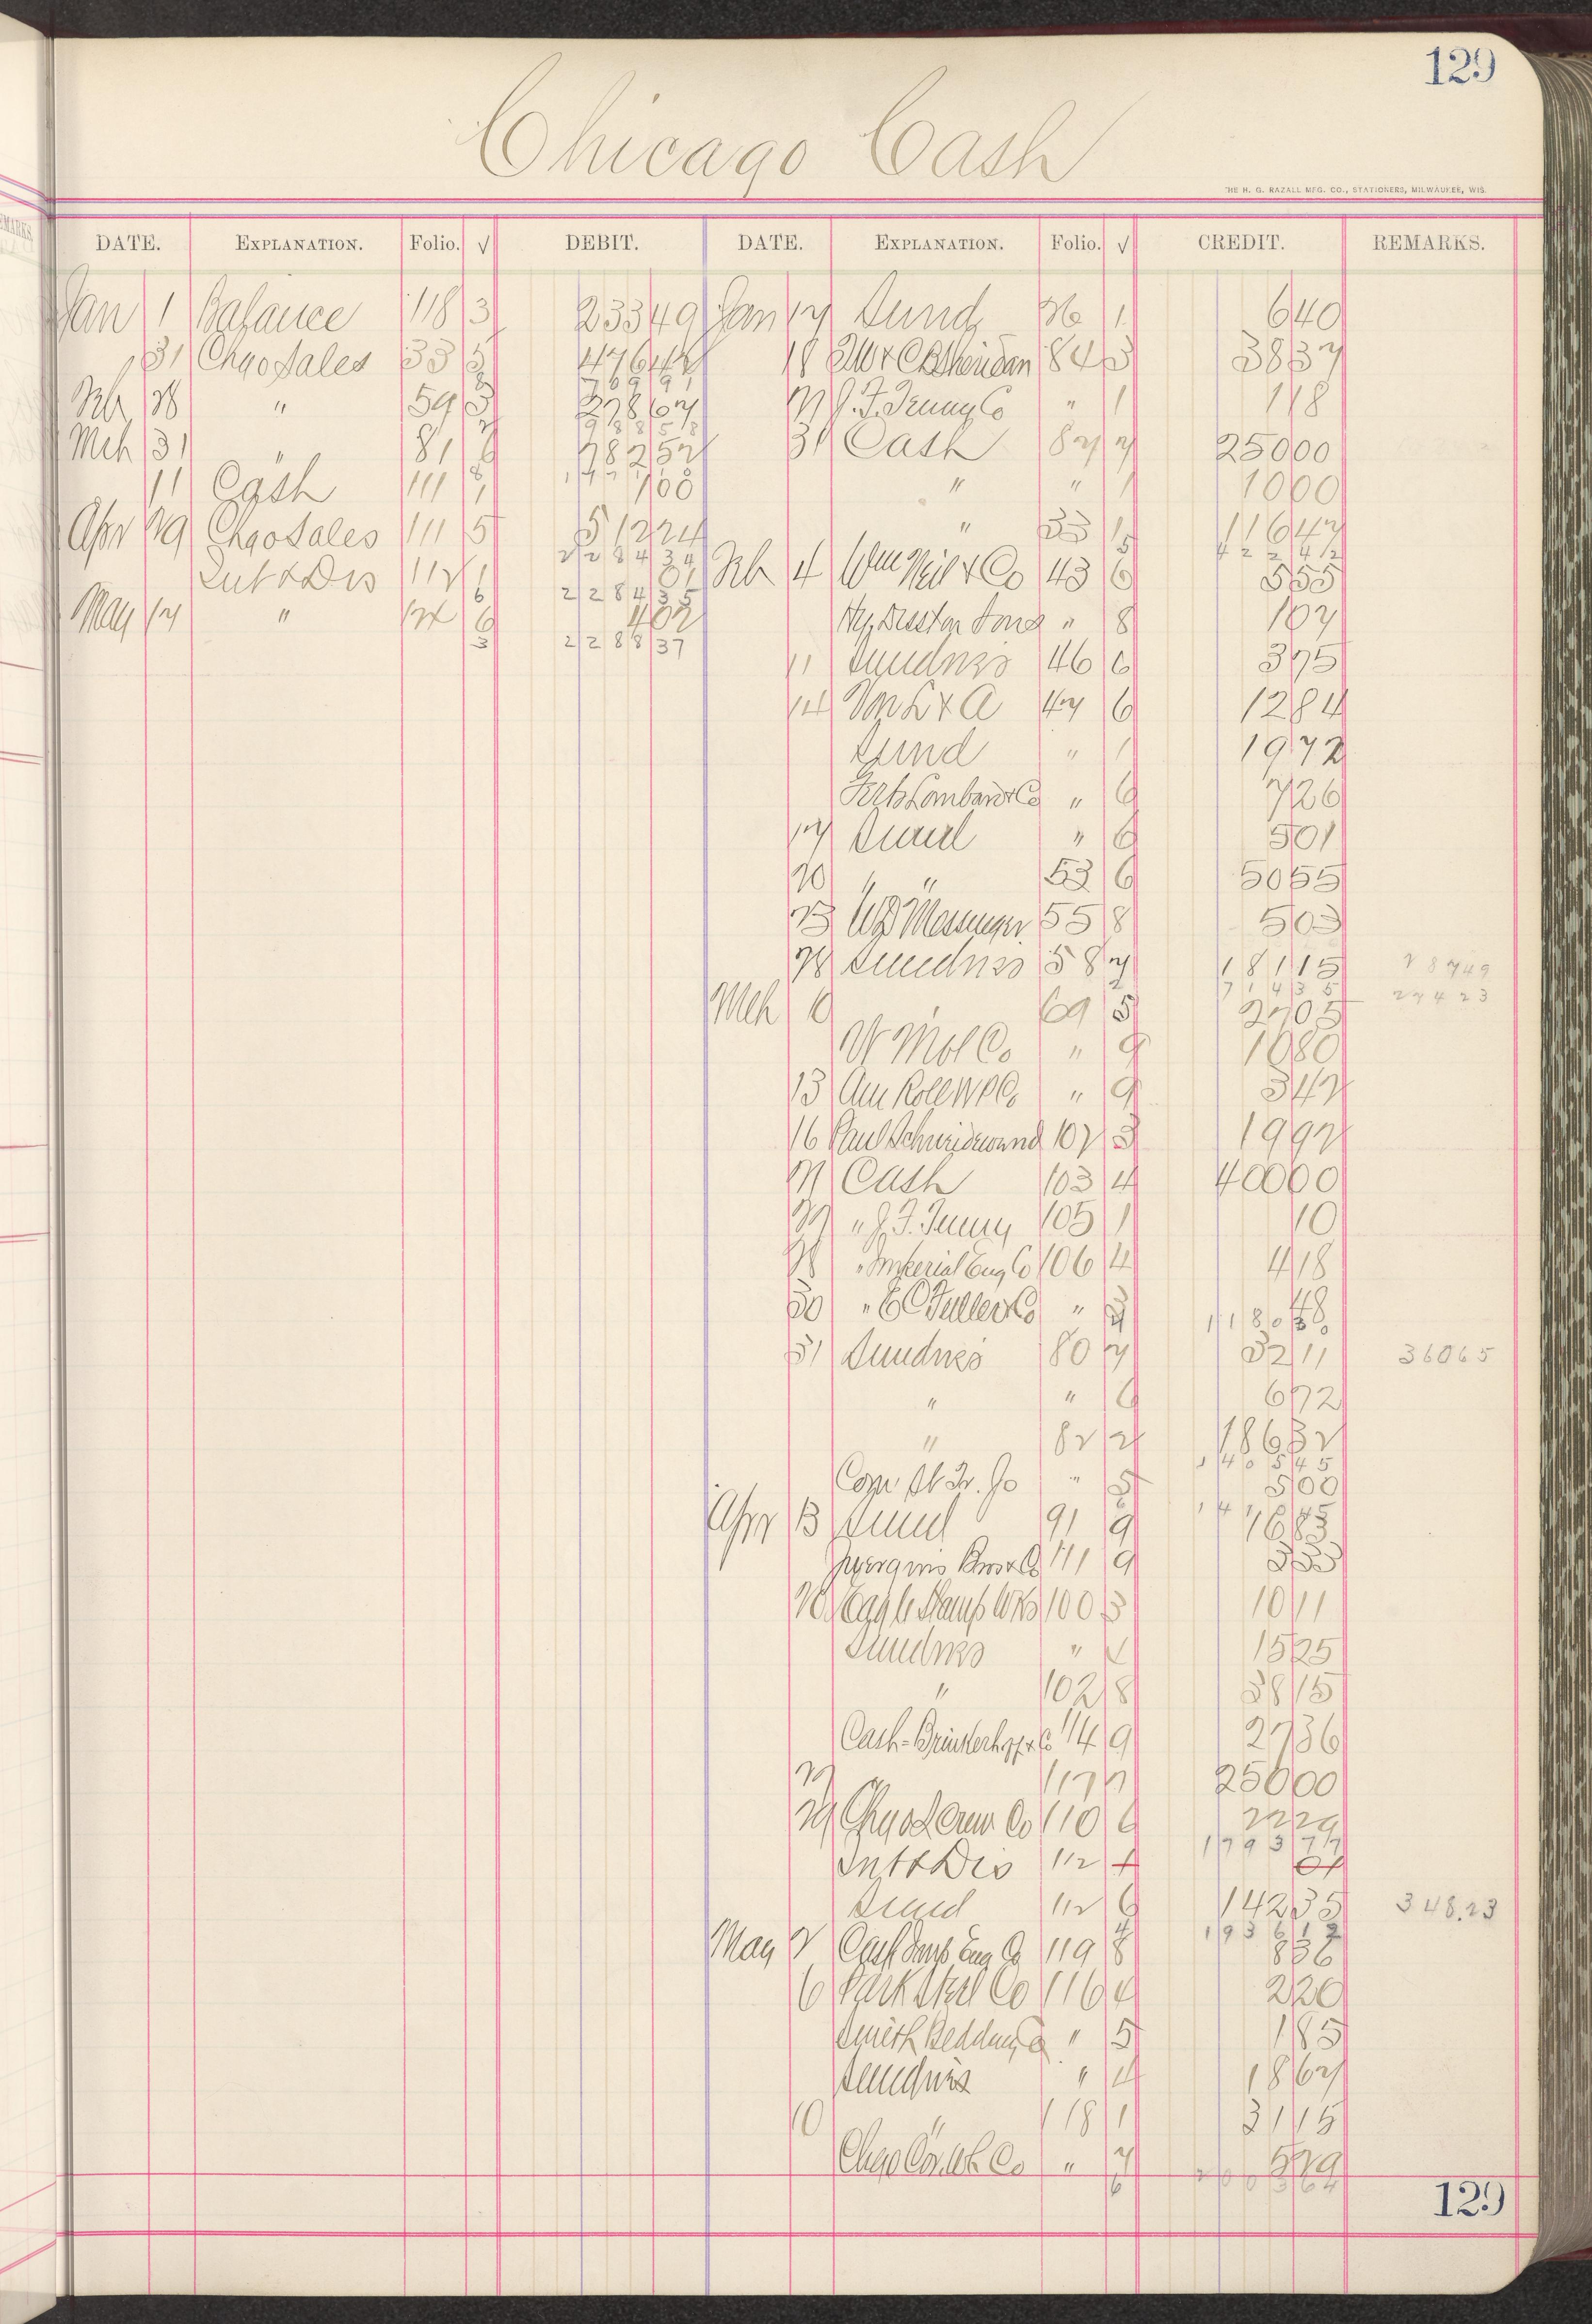 129
Chicago Cash
THE H. G. RAZALL MFG. CO., STATIONERS, MILWAUKEE, WIS.
DATE. EXPLANATION. Folio. √ DEBIT. DATE. EXPLANATION. Folio. √ CREDIT. REMARKS.
Jan 1 Balance 118 3 23349 Jan 17 Sund 36 1 640
31 Chgo Sales 33 47642 18 & C B Sheridan 84 3 3837
Feb 28 " 59 27867 21 J. F. Tenny Co " 1 118
Mch 31 " 81 28252 31 Cash 87 7 25000
11 Cash 111 1 100 " " 1 1000
Apr 29 Chgo Sales 111 5 51224 " 33 1 11647
2 2 8 4 3 4 4 2 2 4 2
Int & Dis 112 1 01 Feb 4 Wm Neil & Co 43 6 555
2 2 8 4 3 5
May 17 " 6 402 Hy Disston Sons " 8 107
3 2 2 8 8 37
11 Sundries 46 6 375
14 & A 47 6 1284
Sund " 1 1972
Lombard & Co " 6 726
17 Sund " 6 501
20 " " 53 6 5055
23 W D Messenger 55 8 503
28 Sundries 58 7 18115 28749
7 1 4 3 5 27423
Mch 6 69 5 2705
N Mol Co " 9 1080
13 Am Roll W P Co " 9 342
16 Paul Schneidewend 107 3 1992
21 Cash 103 4 40000
27 " J. F. Tenny 105 1 10
28 " Imperial Eng Co 106 4 418
30 " E C Fuller & Co " 48
1 1 8 0 3 8
31 Sundries 80 7 3211 36065
" " 6 672
" 82 2 18632
1 4 0 5 4 5
Com St Tr. Co " 5 500
1 4 1
Apr 13 Sund 91 9 7685
Bros & Co 111 9 333
Eagle Stamp Wks 100 3 1011
Sundries " 1525
" 102 8 3815
Cash - Brinkerhoff & Co 114 9 2736
22 117 7 25000
29 Chgo Co 110 6 2229
1 7 9 3 7 7
Int & Dis 112 + 01
Sund 112 6 14235 348.23
1 9 3 6 1 2
May 2 Eng Co 119 8 836
6 Park Steel Co 116 4 220
Smith Redding Co " 5 185
Sundries " 4 1867
10 " 118 1 3115
Chgo Co " 7 579
6 2 0 0 3 6 4
129